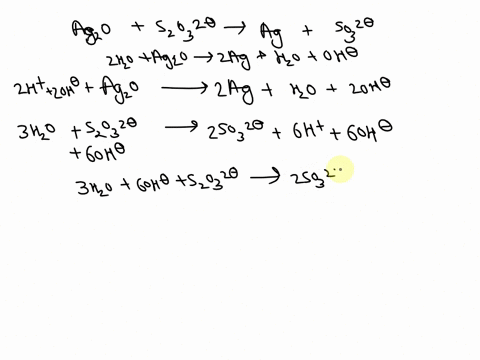 Ag₂O + S₂O₃²⊖ → Ag + SO₃²⊖
2H₂O + Ag₂O → 2Ag + H₂O + OH⊖
2H⁺+2OH⊖ + Ag₂O → 2Ag + H₂O + 2OH⊖
3H₂O + S₂O₃²⊖ → 2SO₃²⊖ + 6H⁺ + 6OH⊖
+ 6OH⊖
3H₂O + 6OH⊖ + S₂O₃²⊖ → 2SO₃²